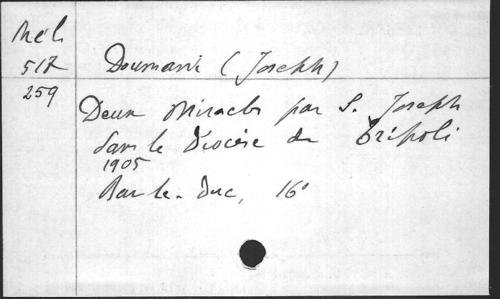 Mél
517 Doumani (Joseph)
259
Deux Miracles par S. Joseph
dans le Diocèse de Tripoli
1905
Bar-le-Duc, 16°